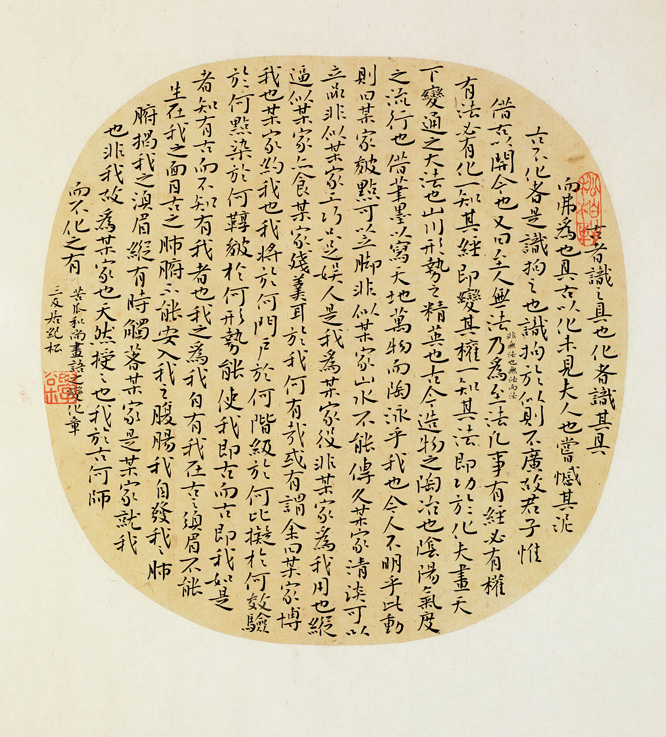 古者識之具也化者識其具
而弗為也具古以化未見夫人也嘗憾其泥
古不化者是識拘之也識拘於似則不廣故君子惟
借古以開今也又曰至人無法非無法也無法而法乃為至法凡事有經必有權
有法必有化一知其經即變其權一知其法即功於化夫畫天
下變通之大法也山川形勢之精英也古今造物之陶冶也陰陽氣度
之流行也借筆墨以寫天地萬物而陶泳乎我也今人不明乎此動
則曰某家皴點可以立腳非似某家山水不能傳久某家清淡可以
立品非似某家工巧只足娛人是我為某家役非某家為我用也縱
逼似某家亦食某家殘羹耳於我何有哉或有謂余曰某家博
我也某家約我也我將於何門戶於何階級於何比擬於何效驗
於何點染於何鞟皴於何形勢能使我即古而古即我如是
者知有古而不知有我者也我之為我自有我在古之鬚眉不能
生在我之面目古之肺腑不能安入我之腹腸我自發我之肺
腑揭我之鬚眉縱有時觸著某家是某家就我
也非我故為某家也天然授之也我於古何師
而不化之有
苦瓜和尚畫語之變化章
三友居紀松